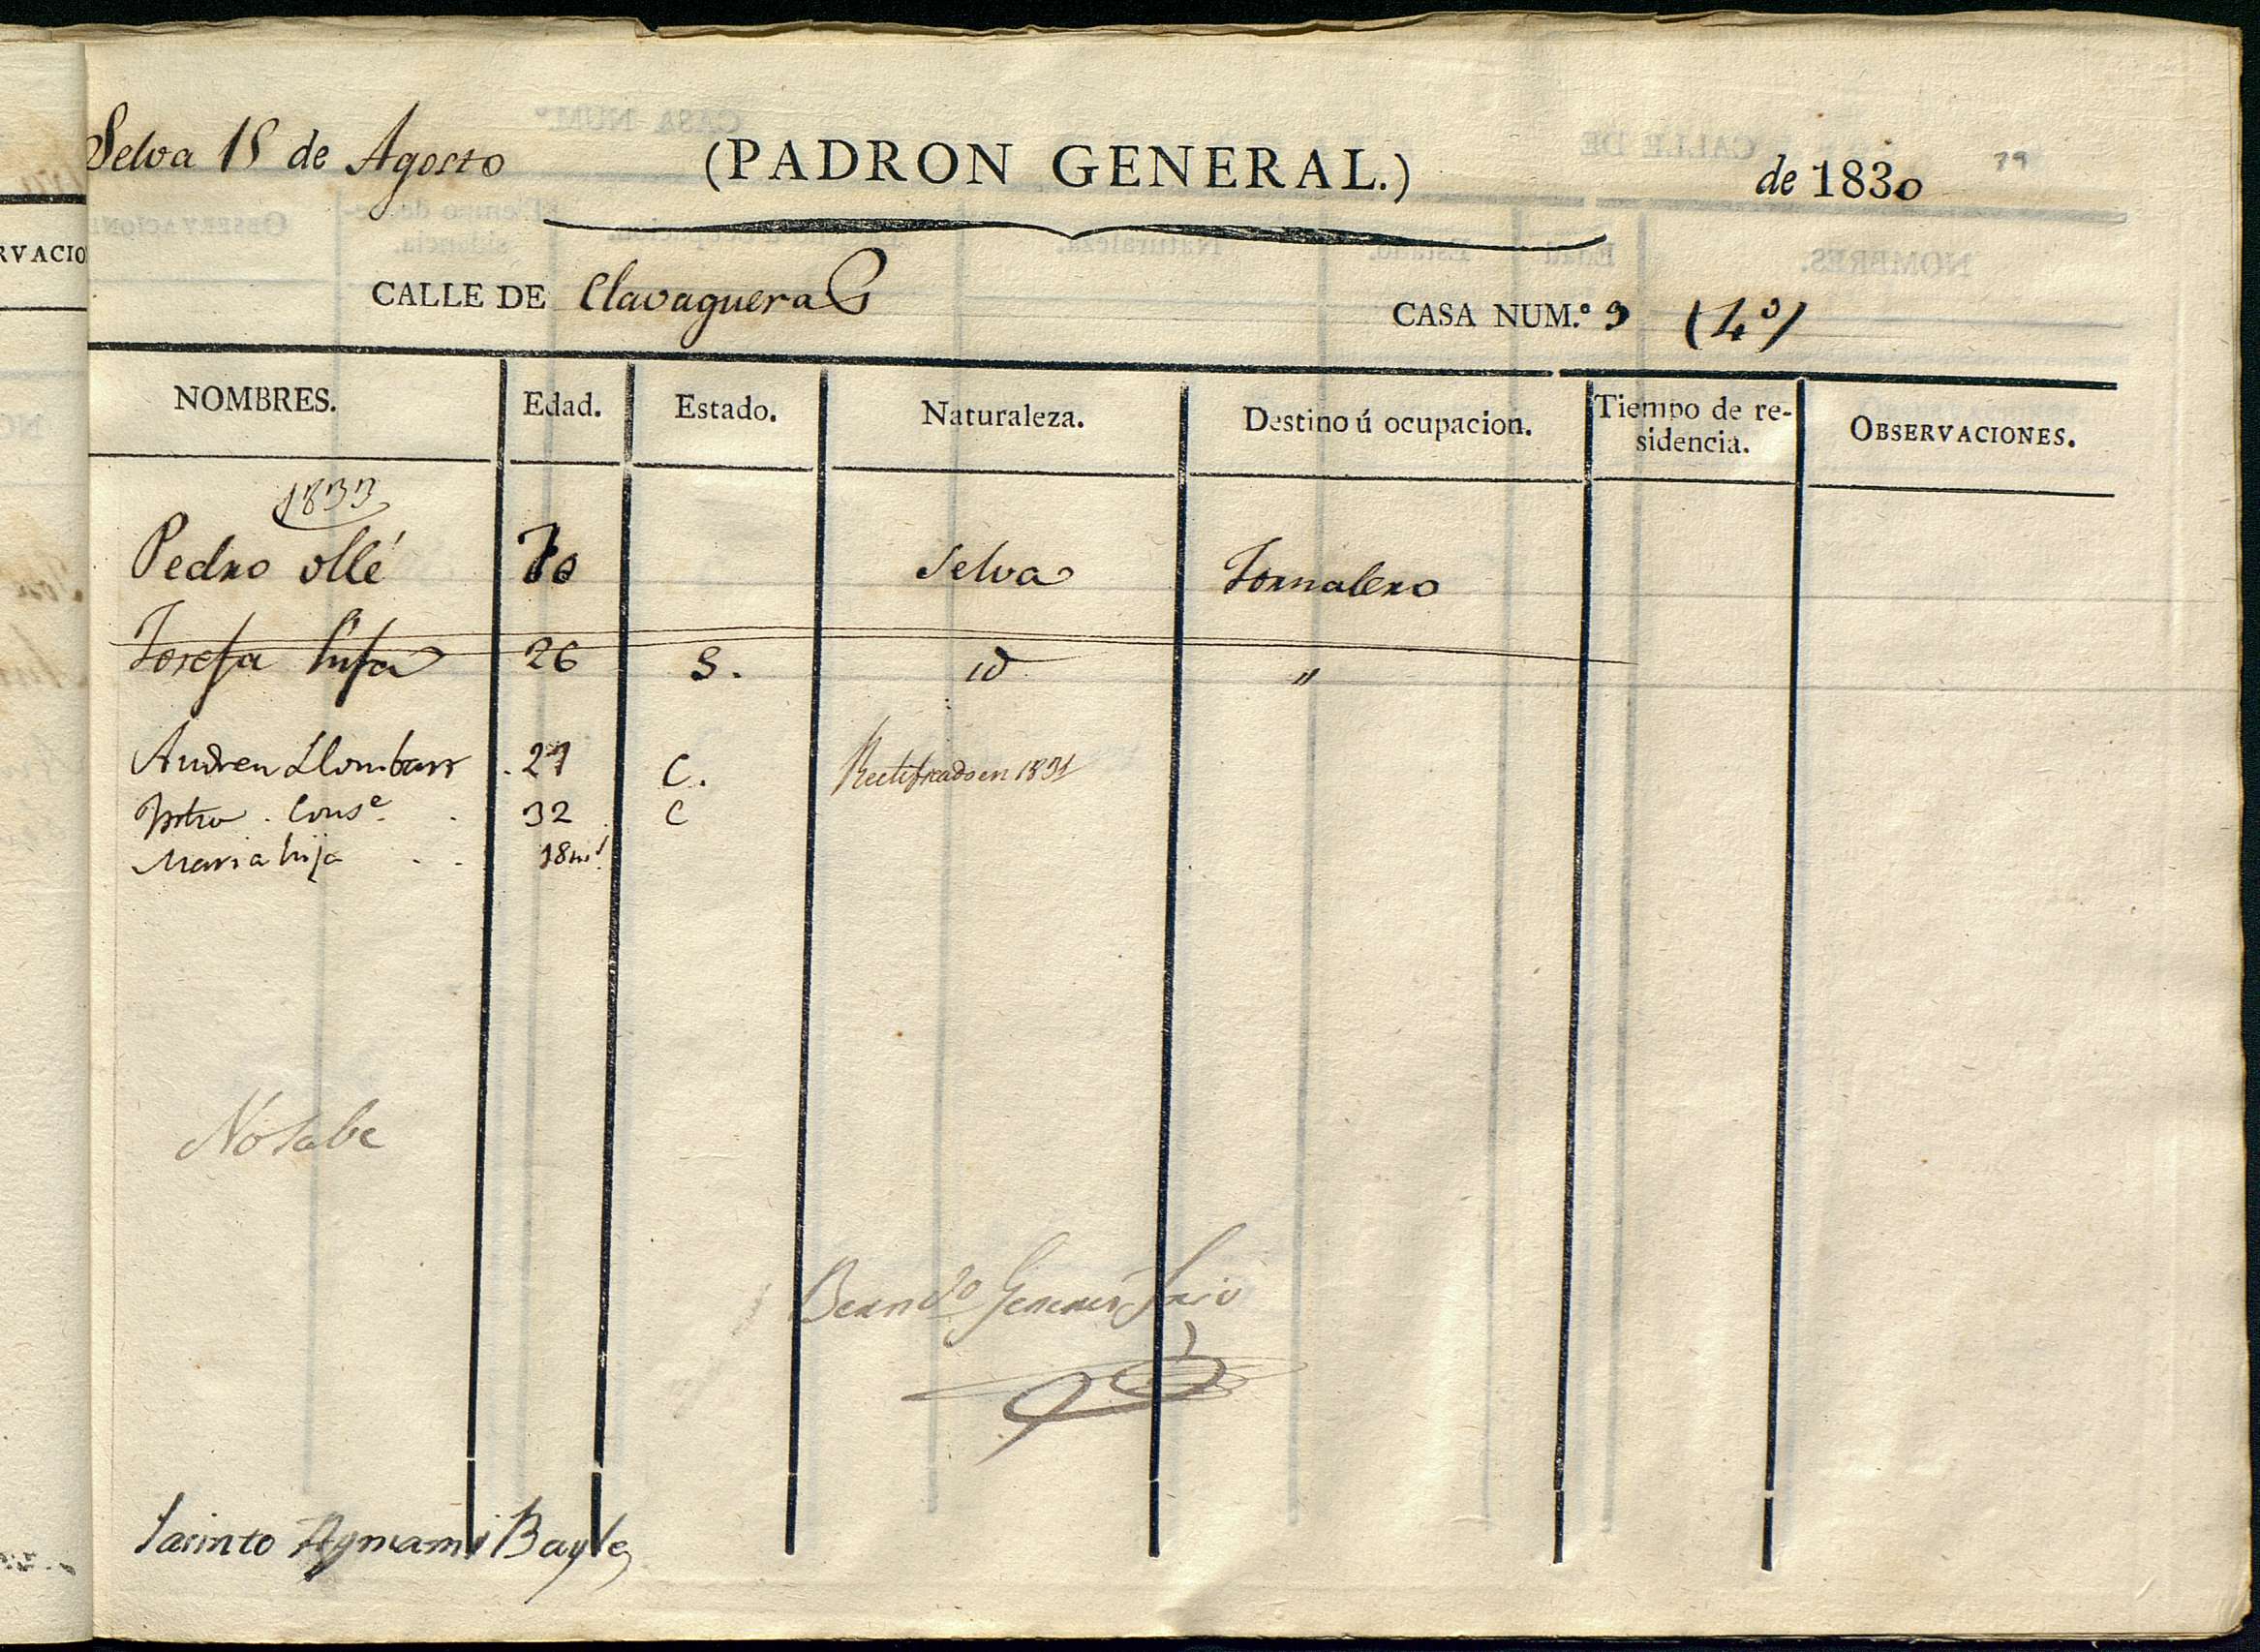 Selva 15 de Agosto (PADRON GENERAL.) de 1830 79
CALLE DE Clavagueras CASA NUM.º 9 (4º)
NOMBRES. Edad. Estado. Naturaleza. Destino ú ocupacion. Tiempo de re-sidencia. OBSERVACIONES.
1833
Pedro ollé 70 Selva Jornalero
Josefa hija 26 S. id "
Andreu Llombart 27 C. Rectificado en 1831
Conse. 32 C
Maria hija 18 ms
No sabe
Berndo Gener Srio
Jacinto Aymamí Bayle